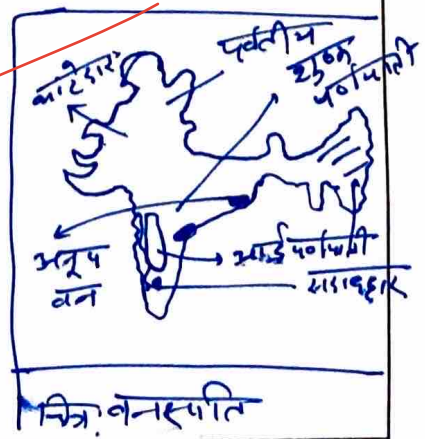 काँटेदार
पर्वतीय
शुष्क
पर्णपाती
अनूप
वन
आर्द्र पर्णपाती
सदाबहार
चित्र: वनस्पति